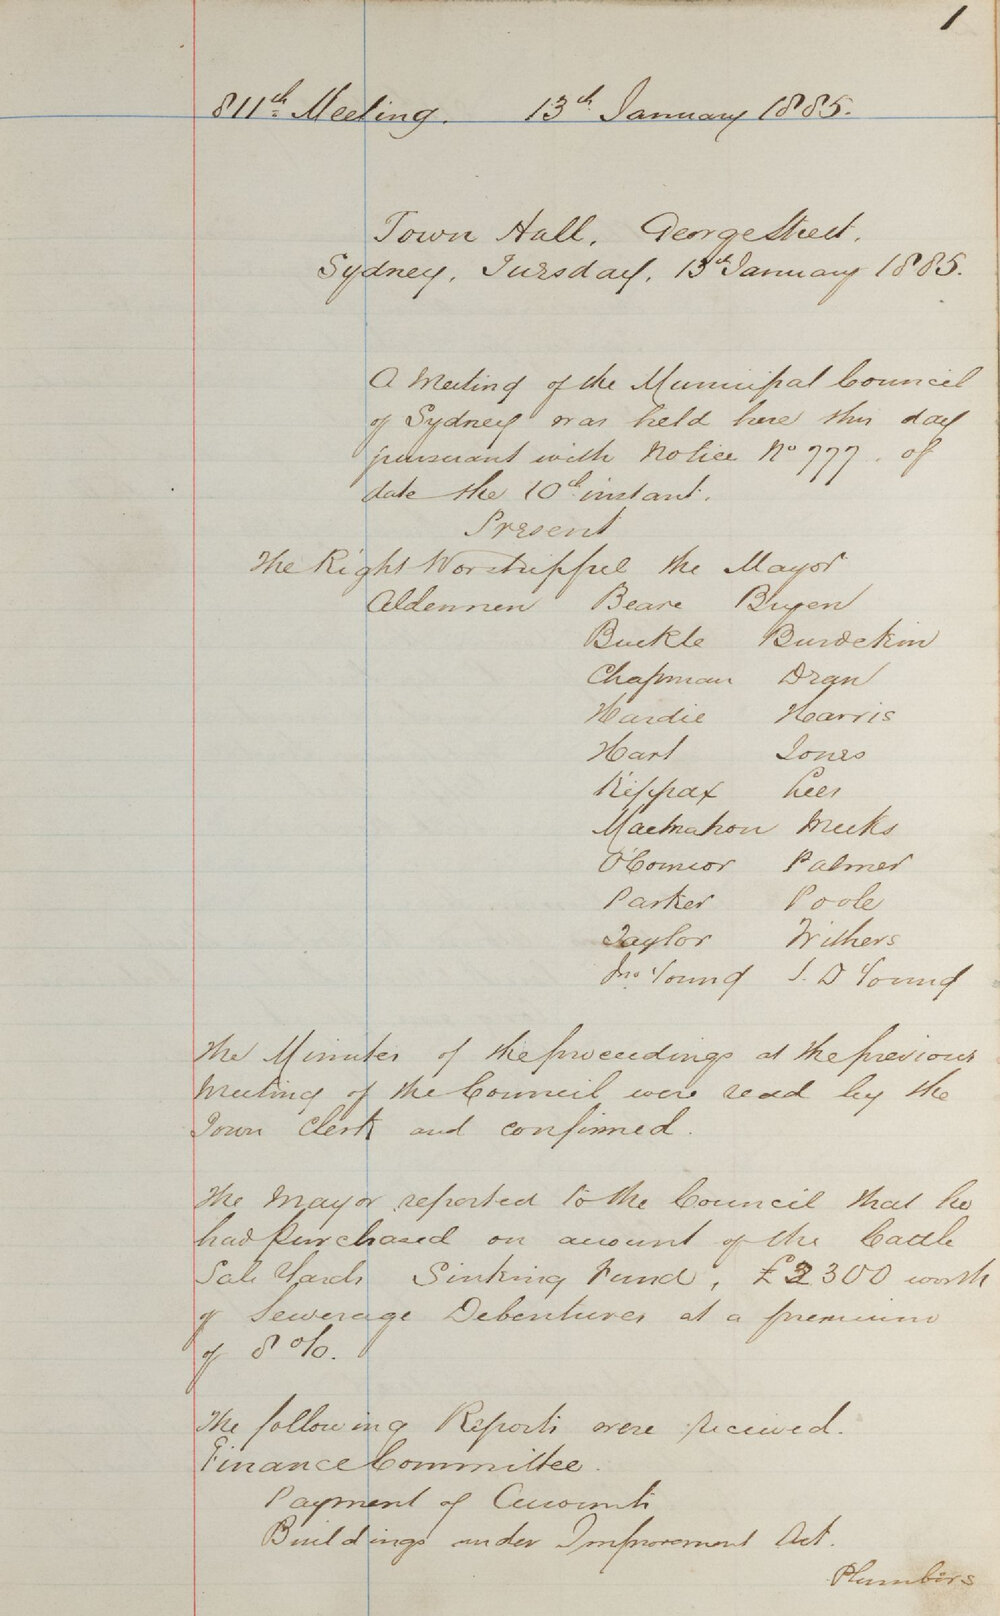 1
811th Meeting. 13th January 1885.
Town Hall, George Street,
Sydney, Tuesday, 13th January 1885.
A Meeting of the Municipal Council
of Sydney was held here this day
pursuant with Notice No 777. of
date the 10th instant.
Present
The Right Worshipful the Mayor
Aldermen Beare Bryen
Buckle Burdekin
Chapman Dean
Hardie Harris
Hart Jones
Kippax Lees
MacMahon Meeks
O'Connor Palmer
Parker Poole
Taylor Withers
Jno. Young J. D Young
The Minutes of the proceedings at the previous
Meeting of the Council were read by the
Town Clerk and confirmed.
The Mayor reported to the Council that he
had purchased on account of the Cattle
Sale Yards Sinking Fund, £2300 worth
of Sewerage Debentures at a premium
of 8 %.
The following Reports were received.
Finance Committee.
Payment of Accounts
Buildings under Improvement Act.
Plumbers